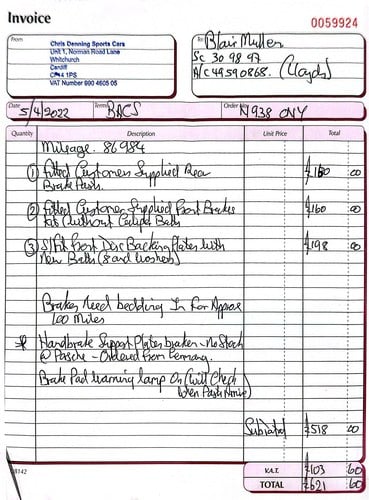 Invoice
0059924
From
Chris Denning Sports Cars
Unit 1, Norman Road Lane
Whitchurch
Cardiff
CF14 1PS
VAT Number 990 4605 05
To
Blair Muller
Sc 30 98 97
A/C 49590868. (Lloyds)
Date 5/4/2022 Terms BACS Order No N938 ONY
Quantity Description Unit Price Total
Mileage. 86984
① Fitted Customer Supplied Rear £160 00
Brake Pads.
② Fitted Customer Supplied Front Brakes £160 00
Kit (without Caliper Bolts
③ S/Fit Front Disc Backing Plates with £198 00
New Bolts (8 and washers)
Brakes Need bedding In For Approx
100 Miles
* Handbrake Support Plates broken - No Stock
@ Porsche - Ordered from Germany.
Brake Pad warning lamp On (Will Check
when Parts Arrive)
Subtotal £518 00
V.A.T. £103 60
TOTAL £621 60